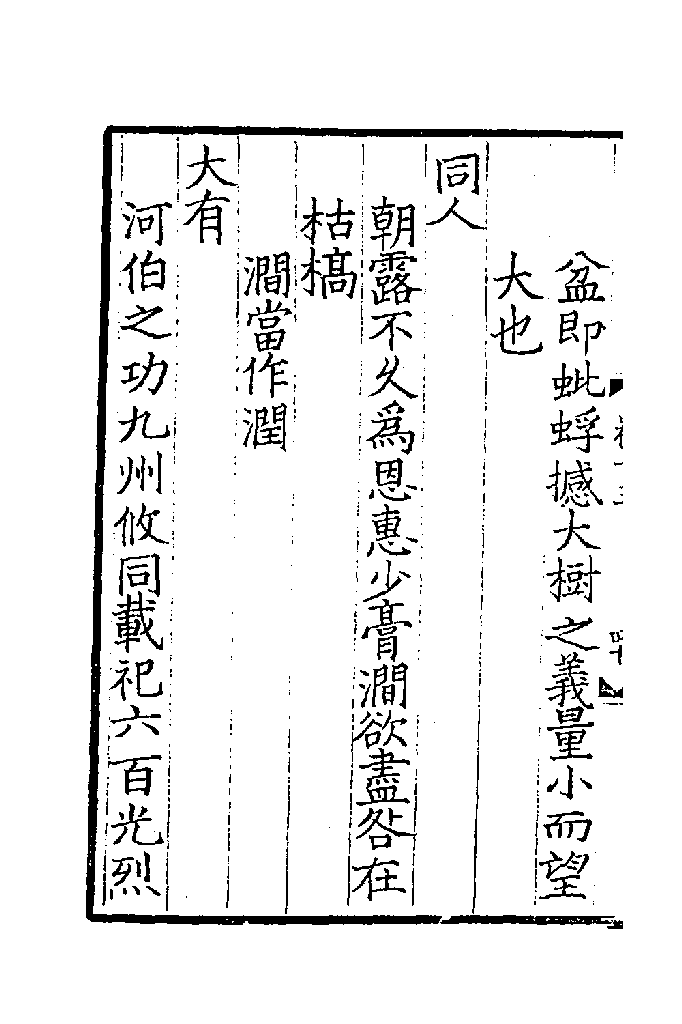 盆即蚍蜉撼大樹之義量小而望
大也
同人
朝露不久爲恩惠少膏澗欲盡咎在
枯槁
澗當作潤
大有
河伯之功九州攸同載祀六百光烈